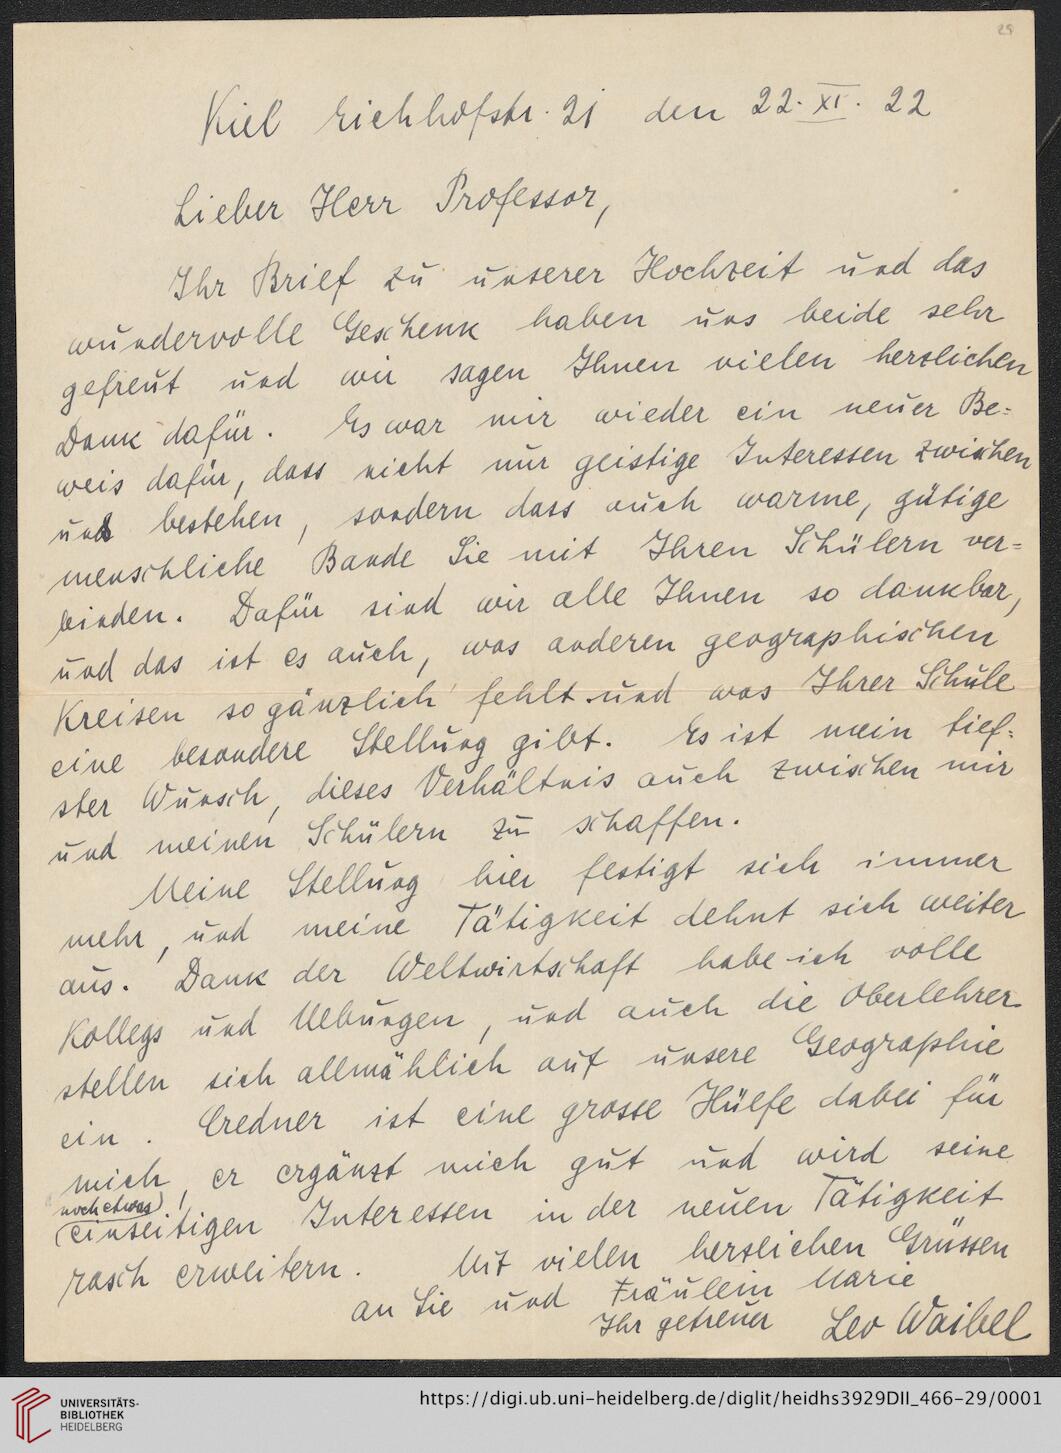 29
Kiel Eichhofstr. 21 den 22. XI. 22
Lieber Herr Professor,
Ihr Brief zu unserer Hochzeit und das
wundervolle Geschenk haben uns beide sehr
gefreut und wir sagen Ihnen vielen herzlichen
Dank dafür. Es war mir wieder ein neuer Be=
weis dafür, dass nicht nur geistige Interessen zwischen
uns bestehen, sondern dass auch warme, gütige
menschliche Bande Sie mit Ihren Schülern ver=
binden. Dafür sind wir alle Ihnen so dankbar,
und das ist es auch, was anderen geographischen
Kreisen so gänzlich fehlt und was Ihrer Schule
eine besondere Stellung gibt. Es ist mein tief=
ster Wunsch, dieses Verhältnis auch zwischen mir
und meinen Schülern zu schaffen.
Meine Stellung hier festigt sich immer
mehr, und meine Tätigkeit dehnt sich weiter
aus. Dank der Weltwirtschaft habe ich volle
Kollegs und Uebungen, und auch die Oberlehrer
stellen sich allmählich auf unsere Geographie
ein. Credner ist eine grosse Hülfe dabei für
mich, er ergänzt mich gut und wird seine
(noch etwas)
einseitigen Interessen in der neuen Tätigkeit
rasch erweitern. Mit vielen herzlichen Grüssen
an Sie und Fräulein Marie
Ihr getreuer Leo Waibel
UNIVERSITÄTS-
BIBLIOTHEK
HEIDELBERG
https://digi.ub.uni-heidelberg.de/diglit/heidhs3929DII_466-29/0001